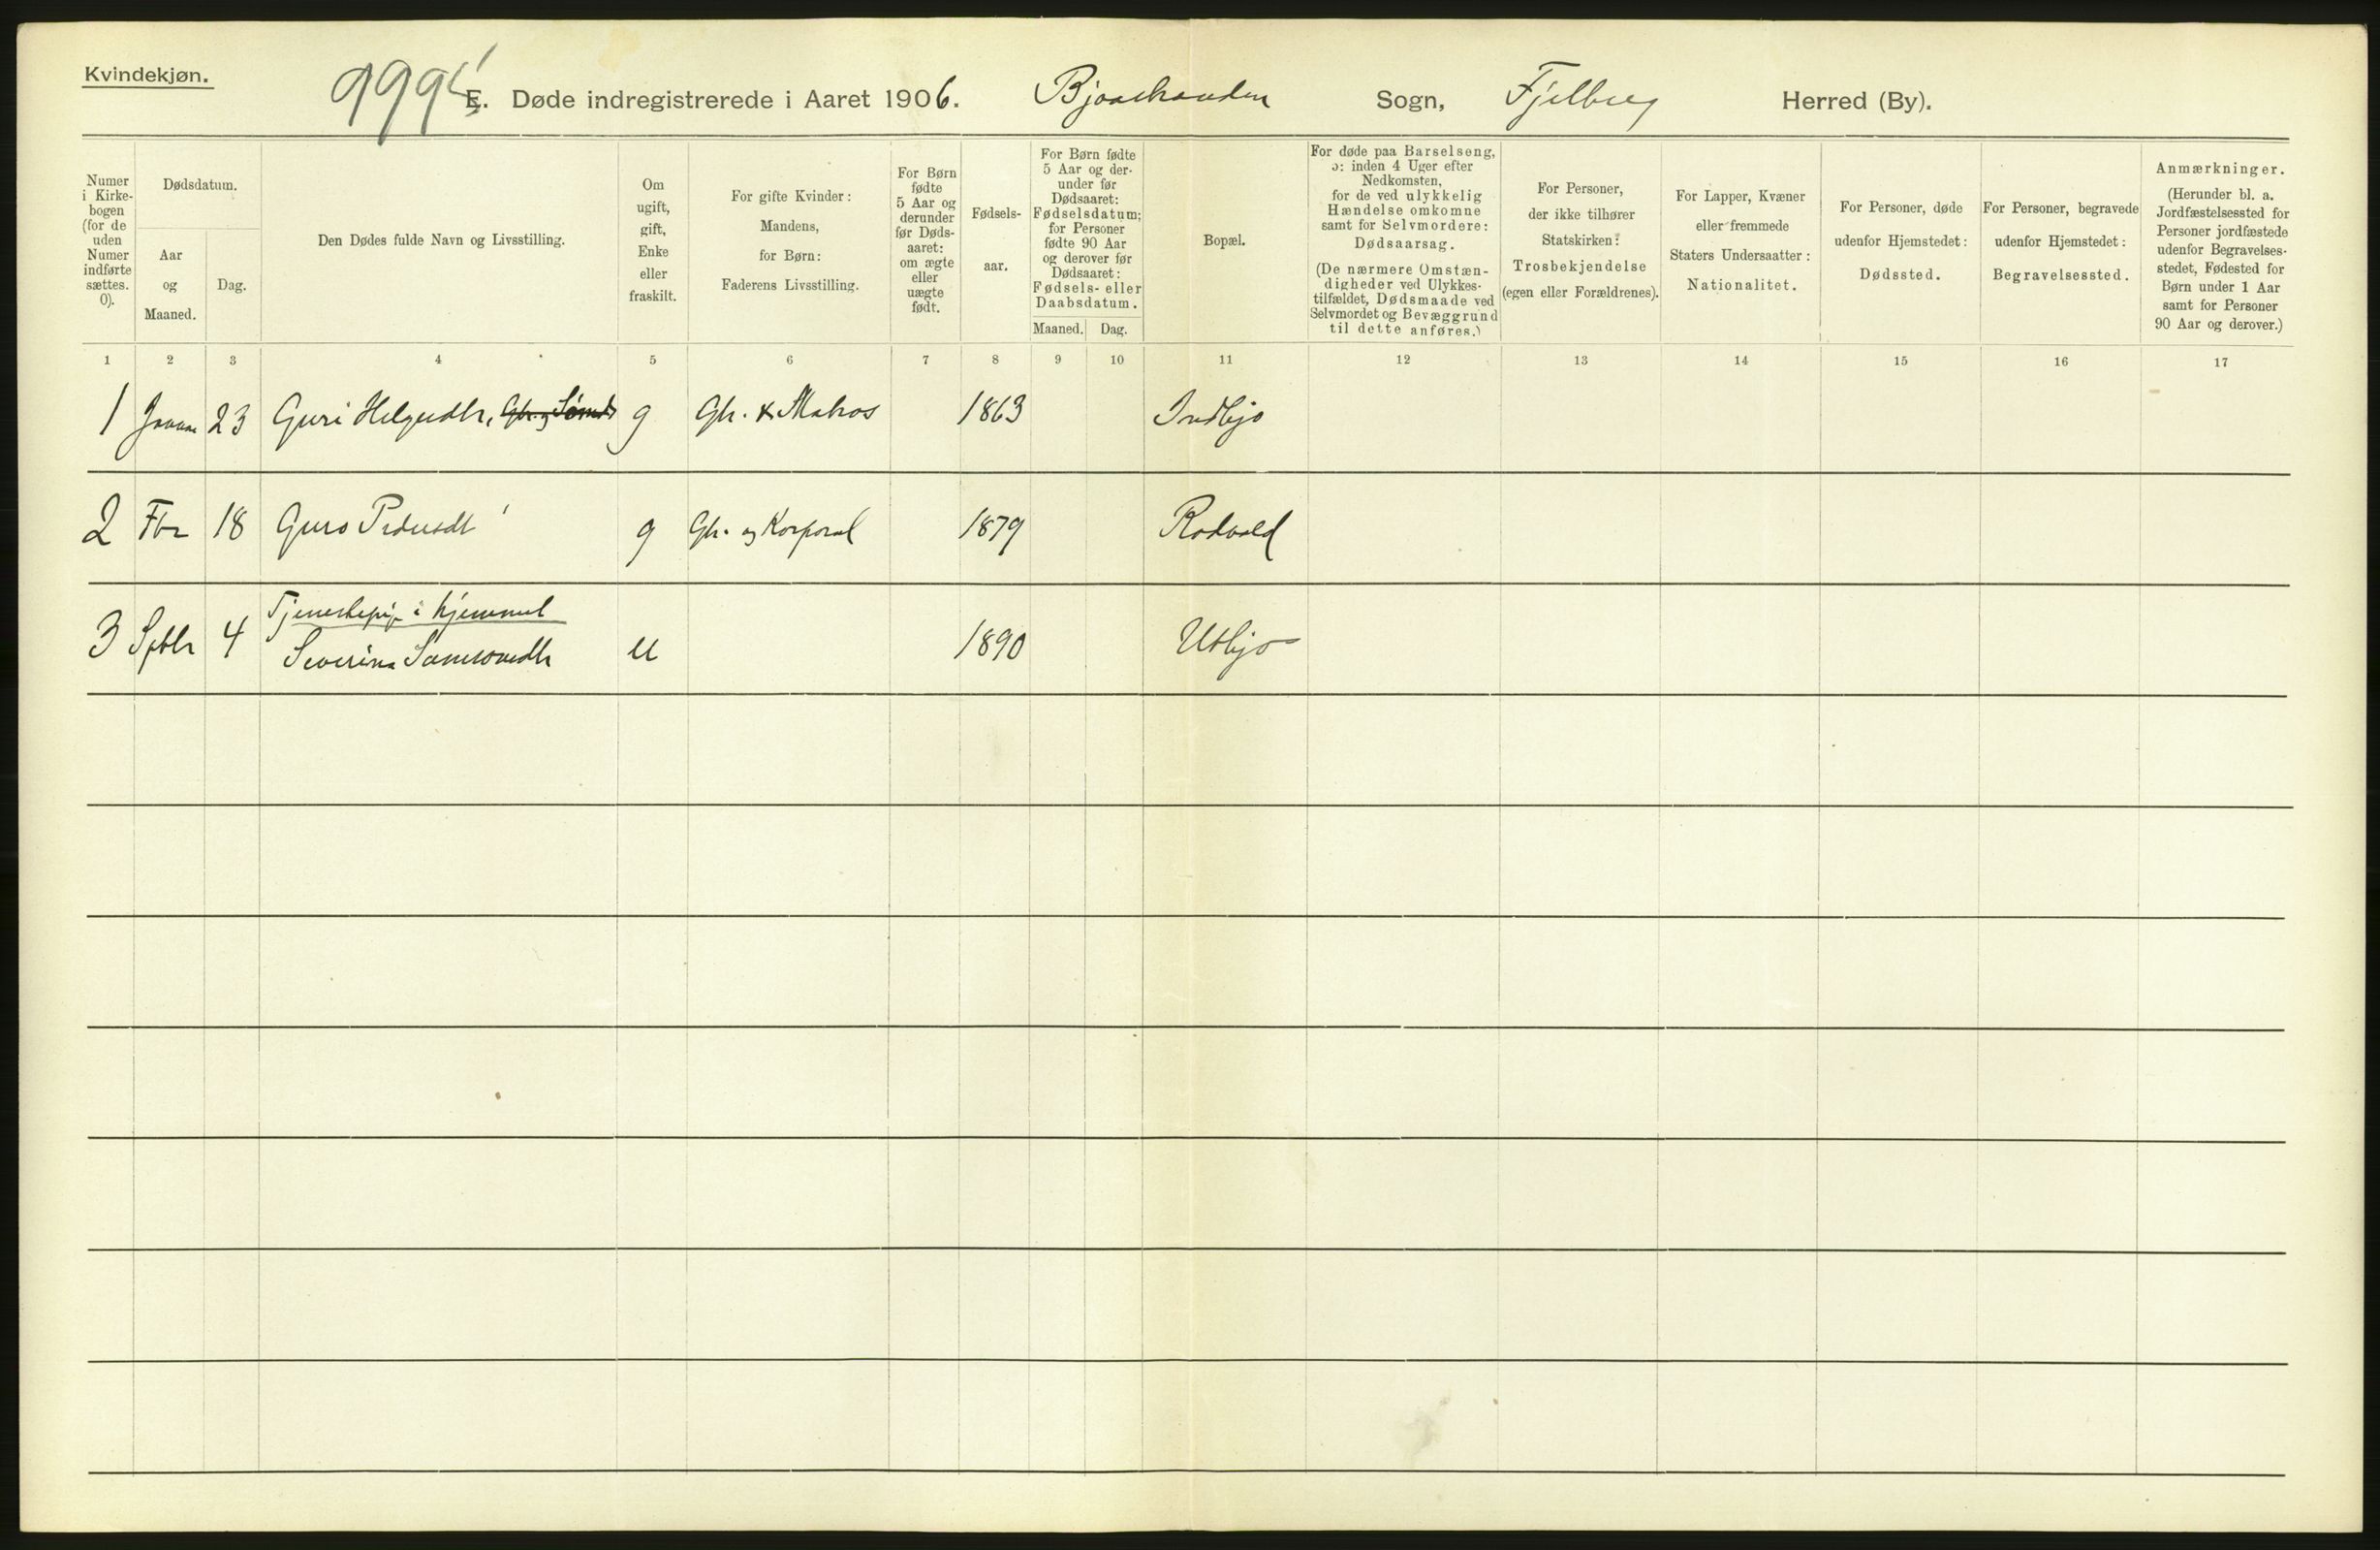 Kvindekjøn.
E. Døde indregistrerede i Aaret 1906. Sogn, Fjelberg Herred (By).
Numer i Kirke- bogen (for de uden Numer indførte sættes. 0).
Dødsdatum.
Aar og Maaned.
Dag.
Den Dødes fulde Navn og Livsstilling.
Om ugift, gift, Enke eller fraskilt.
For gifte Kvinder: Mandens, for Børn: Faderens Livsstilling.
For Børn fødte 5 Aar og derunder før Døds- aaret: om ægte eller uægte født.
Fødsels- aar.
For Børn fødte 5 Aar og der- under før Dødsaaret: Fødselsdatum; for Personer fødte 90 Aar og derover før Dødsaaret: Fødsels- eller Daabsdatum.
Maaned. Dag.
Bopæl.
For døde paa Barselseng, ɔ: inden 4 Uger efter Nedkomsten, for de ved ulykkelig Hændelse omkomne samt for Selvmordere: Dødsaarsag.
(De nærmere Omstæn- digheder ved Ulykkes- tilfældet, Dødsmaade ved Selvmordet og Bevæggrund til dette anføres.)
For Personer, der ikke tilhører Statskirken: Trosbekjendelse (egen eller Forældrenes).
For Lapper, Kvæner eller fremmede Staters Undersaatter: Nationalitet.
For Personer, døde udenfor Hjemstedet: Dødssted.
For Personer, begravede udenfor Hjemstedet: Begravelsessted.
Anmærkninger.
(Herunder bl. a. Jordfæstelsessted for Personer jordfæstede udenfor Begravelses- stedet, Fødested for Børn under 1 Aar samt for Personer 90 Aar og derover.)
1 2 3 4 5 6 7 8 9 10 11 12 13 14 15 16 17
1 23 Guri Helgesdtr, g Gbr. & Matros 1863 Indbjo
2 Fbr 18 Guro Pedersdt g Gbr. og Korporal 1879 Rodveld
Tjenestepige i hjemmet
3 Sptbr 4 Severina Samsonsdtr u 1890 Utbjo